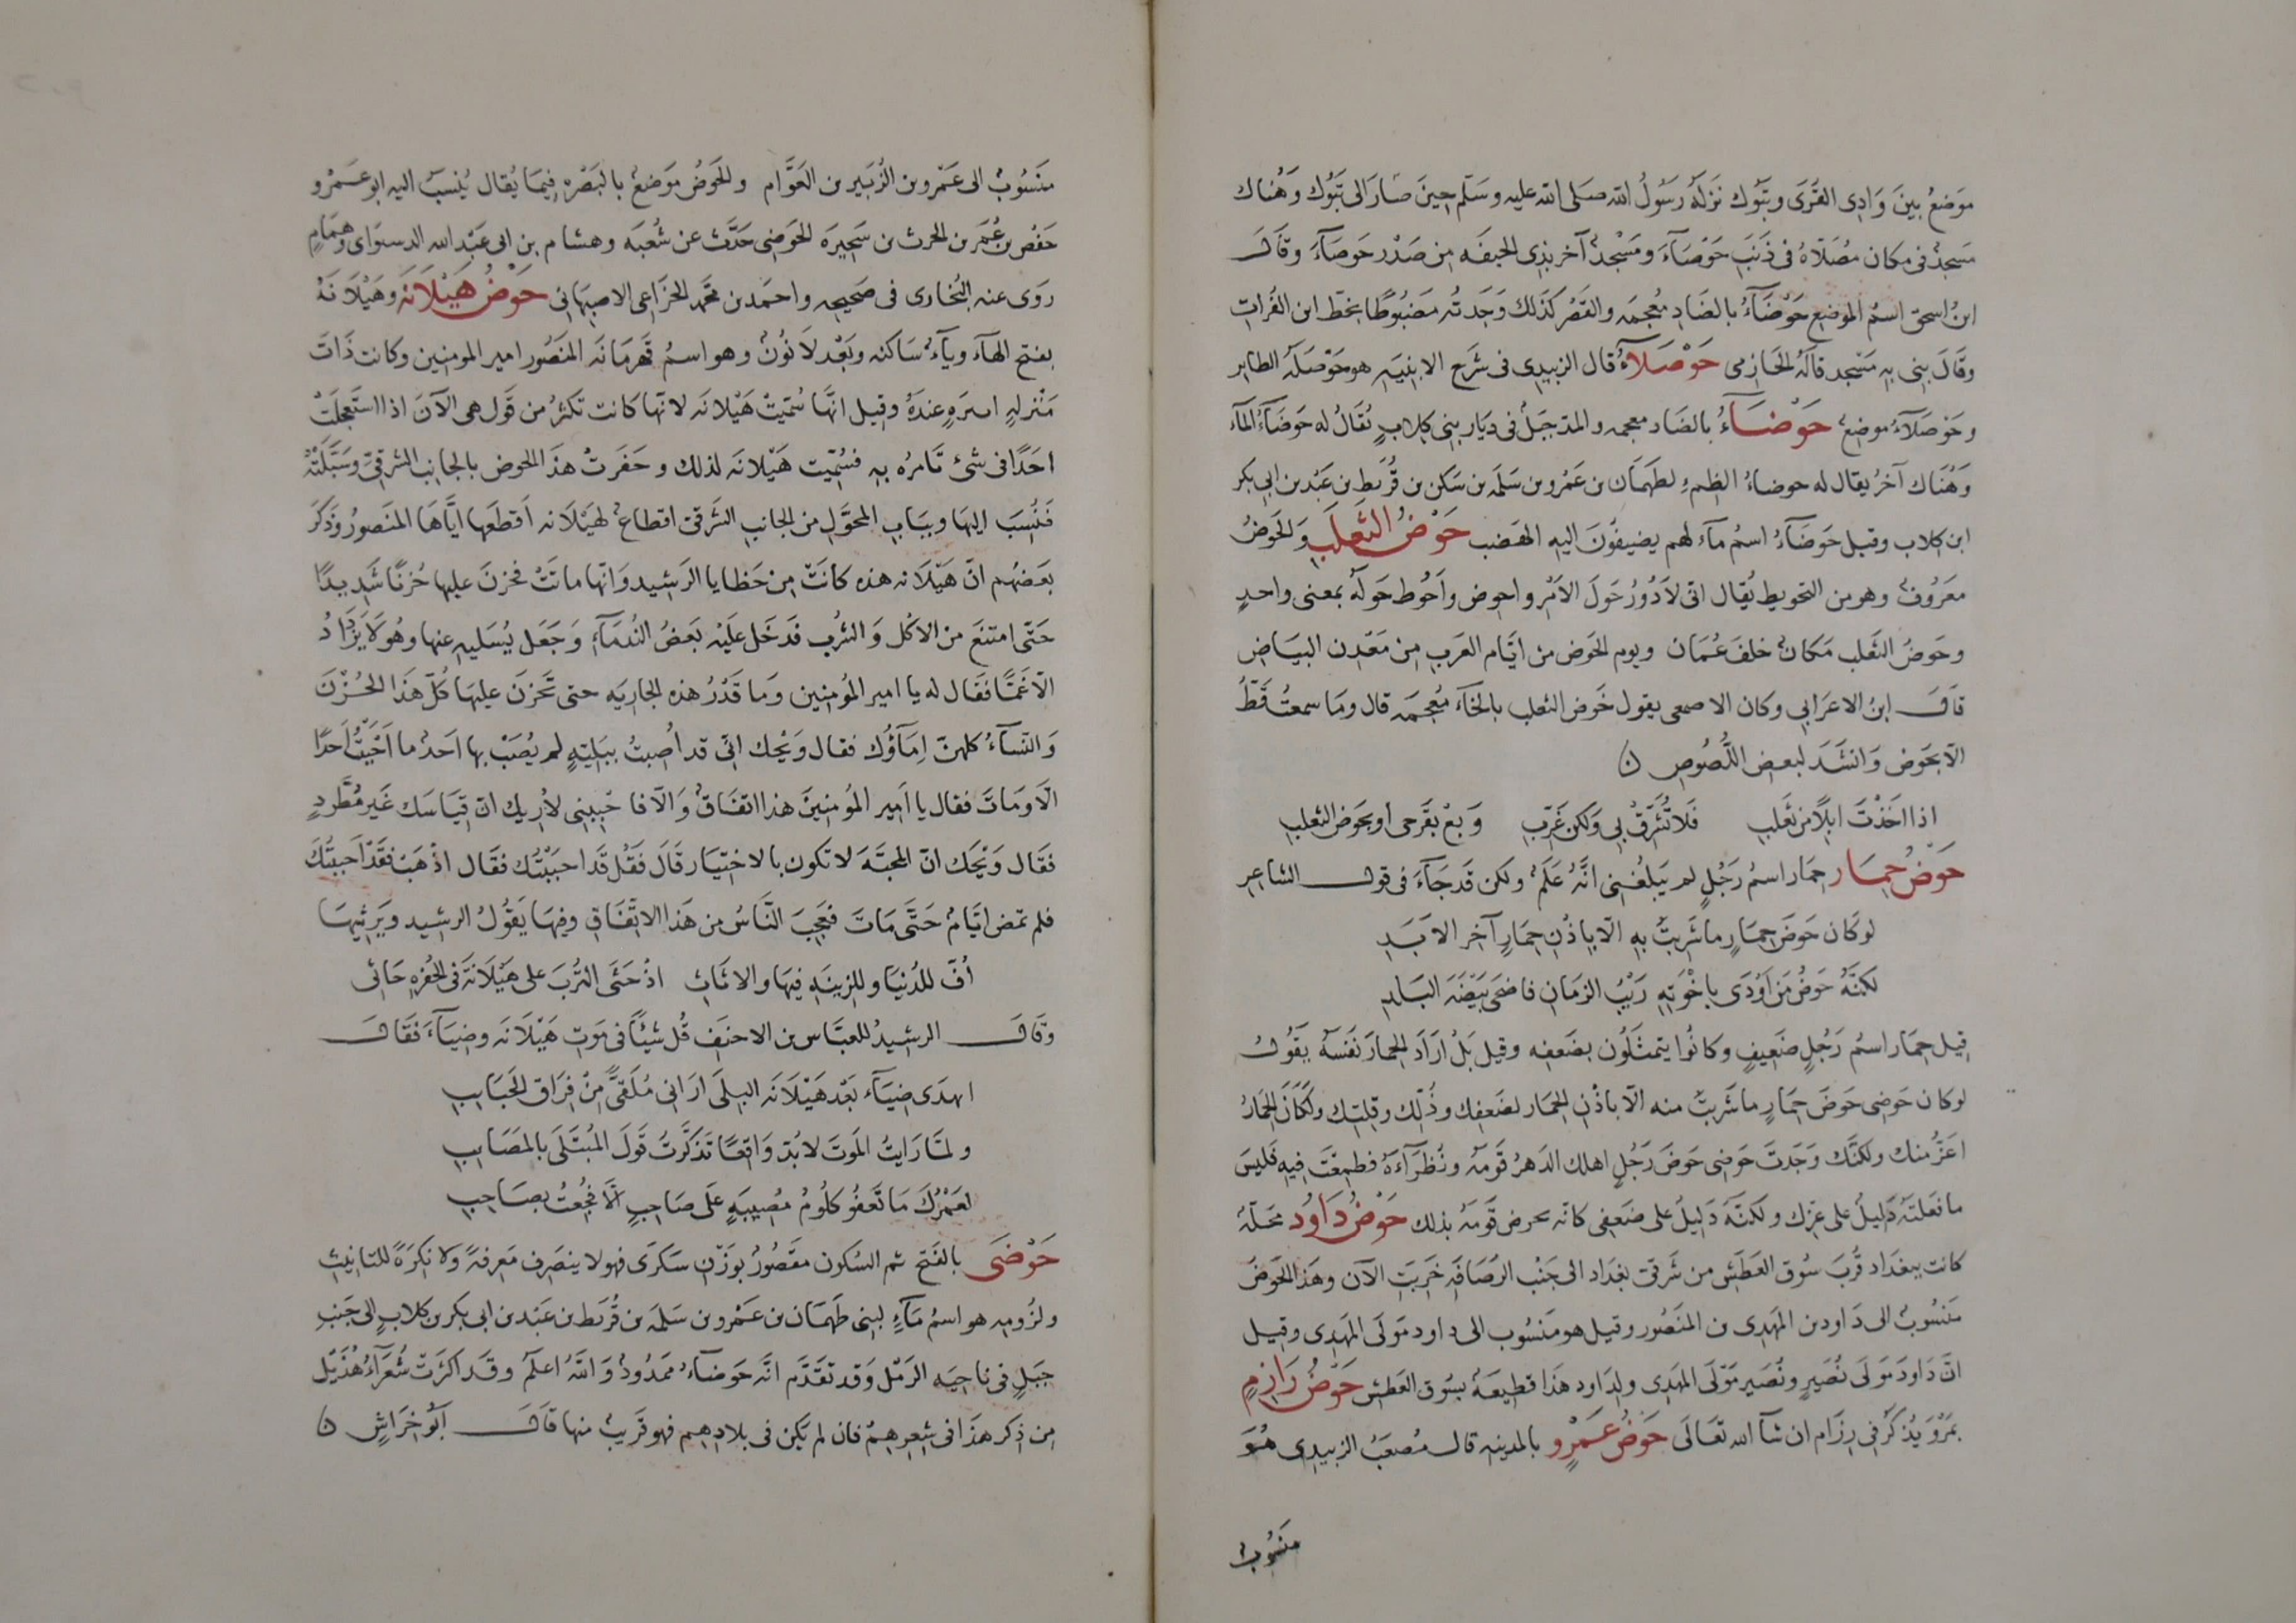 موضعٌ بينَ وَادِى القُرَى وتَبُوك نَزلَهُ رَسُولُ الله صلى الله عليه وسَلّم حِينَ صَارَ الى تَبُوك وَهُناك
مَسجدٌ فى مكان مُصَلّاهُ فى ذَنَبِ حَوْصَآءَ ومَسْجدٌ آخر بذى الجيفَه مِن صَدْر حَوصَآءَ وقَالَ
ابنُ اسحق اسمُ الموضِع حَوْضَآءُ بالضَادِ مُعجمَه والقَصْرِ كَذَلك وَجَدتُه مَضبُوطًا بخطّ ابن الفُراتِ
وقَالَ بنى بِهِ مَسْجِد قالَهُ الحَازِمى حَوْصَلآءُ قال الزبيدِى فى شَرح الابنِيَه هو حَوْصَلَه الطاير
وحَوصَلآءُ موضِعٌ حَوْضَآءُ بالضَاد معجمه والمدّ جبَلٌ فى دِيَار بنِى كِلابٍ يُقَالُ له حَوضَآءُ المآء
وَهُنَاك آخرُ يقَال له حوضاءُ الظِمءِ لطَهمَان بن عَمْرو بن سَلمَه بن سَكن بن قُرَيط بن عَبْد بن ابى بَكر
ابن كِلاب وقيل حَوضَآءُ اسمُ مآء لهم يضيفُونَ اليهِ الهَضب حَوْضُ الثَعلَبِ وَالحَوضُ
معرُوفٌ وهو من التحويط يُقال انى لأدُورُ حَولَ الأمْرِ واحوض وأَحُوط حَولَهُ بمعنى واحدٍ
وحَوضُ الثعلب مَكانٌ خلفَ عُمَان ويوم الحَوض من ايّام العَرب مِن مَعْدِن البيَاضِ
قاَلَ ابنُ الاعرَابى وكان الاصمعى يقول خَوض الثعلب بالخآء مُعجمَه قال ومَا سمعتُ قَطُّ
الّا بحَوض وَانشَدَ لبعضِ اللُّصُوصِ ن
اذا اخَذْتَ ابِلًا مِن ثَعلَبِ فلَا تُشَرّقْ بِى وَلكن غَرِّبِ وَبِعْ بقَرحى او بحَوض الثعلبِ
حَوْضُ حِمَار حِمَار اسمُ رَجُلٍ لم يَبلغْنِى انَّهُ عَلَمٌ ولكن قَد جَآءَ فى قول الشاعِرِ
لوكَان حَوضَ حِمَارٍ ما شَرِبتَ بهِ الّا بِاِذْنِ حِمَارٍ آخرِ الابَدِ
لَكنّهُ حَوضُ مَن اَوْدَى باِخْوَتِهِ رَيْبُ الزمَانِ فاضحَى بَيْضَهَ البَلدِ
قِيل حِمَار اسمُ رَجُلٍ ضَعِيفٍ وكانُوا يتمثَلُون بضَعفِه وقيل بَلْ ارَادَ الحِمارَ نَفسَهُ يَقُولُ
لوكان حَوضى حَوضَ حِمَارٍ ما شَربتَ منه الّا باذْنِ الحمَار لضَعفِك وذُلّك وقلتِك ولكَانَ الحِمَارُ
اعزُّ منك ولكنّك وَجَدتَ حَوضى حَوضَ رَجُلٍ اهلك الدَهرُ قَومَهُ ونُظَرآءَهُ فطمِعْتَ فِيهِ فَليسَ
ما فعَلتَهُ دَليلٌ على عزِّك ولكنّهُ دَليلٌ على ضَعفى كانّه يحرض قَومَهُ بذلك حَوْضُ دَاوُد مَحَلّهٌ
كانت ببغدَاد قُربَ سُوق العَطَش من شَرقى بغدَاد الى جَنْب الرُصَافَه خَرِبَت الآن وهَذا الحَوضُ
مَنسُوبٌ الى دَاود بن المهدِى بن المنصُور وقيل هو مَنسُوب الى داود مَولَى المهدِى وقيل
انّ دَاودَ مَولَى نُصَيرٍ ونُصَير مَولَى المهدِى ولِدَاود هَذا قطِيعَهٌ بسُوق العَطش حَوْضُ رَازِمٍ
بمَرْوَ يُذكَر فى رِزَام ان شآ الله تعَالَى حَوْضُ عَمْرٍو بالمدينهِ قال مُصعَبُ الزبيدِى هُوَ
منسُوبٌ
منسُوبٌ الى عَمْرو بن الزُبَير بن العَوّام والحَوضُ موَضعٌ بالبَصْره فِيمَا يُقال يُنسبَ اليهِ ابو عَمْرو
حَفص بن عُمَر بن الحرث بن سَخبَرَه الحَوضى حَدّث عن شُعبَه وهشام بن ابى عَبْد الله الدستوَاى وهَمّامٍ
روَى عنه البُخارى فى صَحيحِه واحمَد بن محَمد الخزَاعِى الاصبَهانى حَوْضُ هَيْلَانَه وهَيْلَانَهُ
بفتح الهآء ويآءٌ سَاكنه وبَعْد لَا نُونٌ وهو اسمُ قَهرمَانَه المنصُور امير المومنين وكانت ذَاتَ
مَنْزلهٍ اسرَهٍ عندَهُ وقيل انّهَا سُمّيتْ هَيْلانَه لانّها كانت تكثِرُ من قَول هى الآنَ اذا استَعجَلَتْ
احَدًا فى شئ تَامرُه بِهِ فسُمِّيت هَيْلانَه لذلك وحَفَرتْ هذَا الحَوض بالجانِب الشرقِىِّ وسَبَّلَتْهُ
فَنُسِبَ اليهَا وببَابِ المحوّل من الجانبِ الشَرقى اقطاعٌ لهَيْلَانه اَقطَعها ايّاهَا المنَصورُ وذَكرَ
بعَضهُم انّ هَيْلَانه هذه كانَتْ مِن حَظايا الرَشِيد وَانّها مَاتَتْ فحزنَ عليها حُزنًا شَدِيدًا
حَتّى امتنعَ من الأكل وَالشُرب فدَخل عَليْهِ بَعضُ النُدمَآءِ وَجعَل يُسَليهِ عنها وهُو لَا يَزْدَادُ
الّا غَمًّا فقَال له يا امير المُومنين وَما قَدْرُ هذه الجارِيَه حتى تَحزنَ عليهَا كُلّ هَذَا الحُزْنَ
وَالنّسآءُ كلهنّ اِمَآؤك فقال وَيْحك انّى قد أُصبتُ ببَليّهٍ لم يُصَبْ بها اَحَدٌ ما احْبَبْتُ اَحَدًا
الّا وَمَاتَ فقال يا اَمير المُومنينَ هذا اتفَاقٌ وَالّا فاحْبِبنى لأُرِيك انّ قِيَاسَك غَير مُطَّردٍ
فقَال وَيْحَك انّ المحبَّهَ لا تكون بالاختِيَار قَالَ فَقُل قَد احبَبْتُك فقَال اذْهَب فقَد احبَبْتُكَ
فلم تمض ايّامٌ حَتَّى مَاتَ فعَجِبَ النَّاسُ من هَذا الاتّفَاقِ وفِيهَا يَقُولُ الرشِيد ويَرثِيهَا
اُفٍّ للدُنيَا وللِزينَهِ فيهَا والاثَاثِ اذْ حَثَى التُربَ على هَيْلَانَهَ فى الحُفرهِ حَاثِى
وقَالَ الرشِيدُ للعبّاس بن الاحنَفِ قُل شيئًا فى مَوتِ هَيْلَانَه وضِيَآءَ فقَالَ
اهدَى ضِيَآء بَعْد هَيْلَانَه البِلَى ارَانى مُلَقّىً مِنْ فِرَاق الحَبَايبِ
ولمّا رَايتُ الموَتَ لابُدّ وَاقِعًا تَذَكَّرتُ قَولَ المُبْتَلَى بالمصَايبِ
لعَمرُكَ مَا تَعْفُو كلُومُ مُصِيبَهٍ عَلَى صَاحِبٍ الّا فُجِعْتُ بصَاحِبِ
حَوْضَى بالفَتح ثم السُكون مقَصُورٌ بوَزْنِ سَكرَى فهو لا ينصَرِف مَعرِفهً ولا نكِرَةً للتانِيثِ
ولزُومِه هو اسمُ مآءٍ لبنِى طَهمَان بن عَمْرو بن سَلمَه بن قُرَيط بن عَبْد بن ابى بَكر بن كلابٍ الى جَنبِ
جبَلٍ فى ناحِيَه الرَمْل وَقد تقَدَّم انّه حَوضآءُ ممَدُودٌ وَاللهُ اعلَم وقَد اكثَرتْ شُعَرَآءُ هُذَيْل
مِن ذِكر هَذا فى شِعرِهِمُ فان لم يَكن فى بلَادِهم فهو قَريبٌ منهَا قاَلَ اَبُو خِرَاشٍ ن